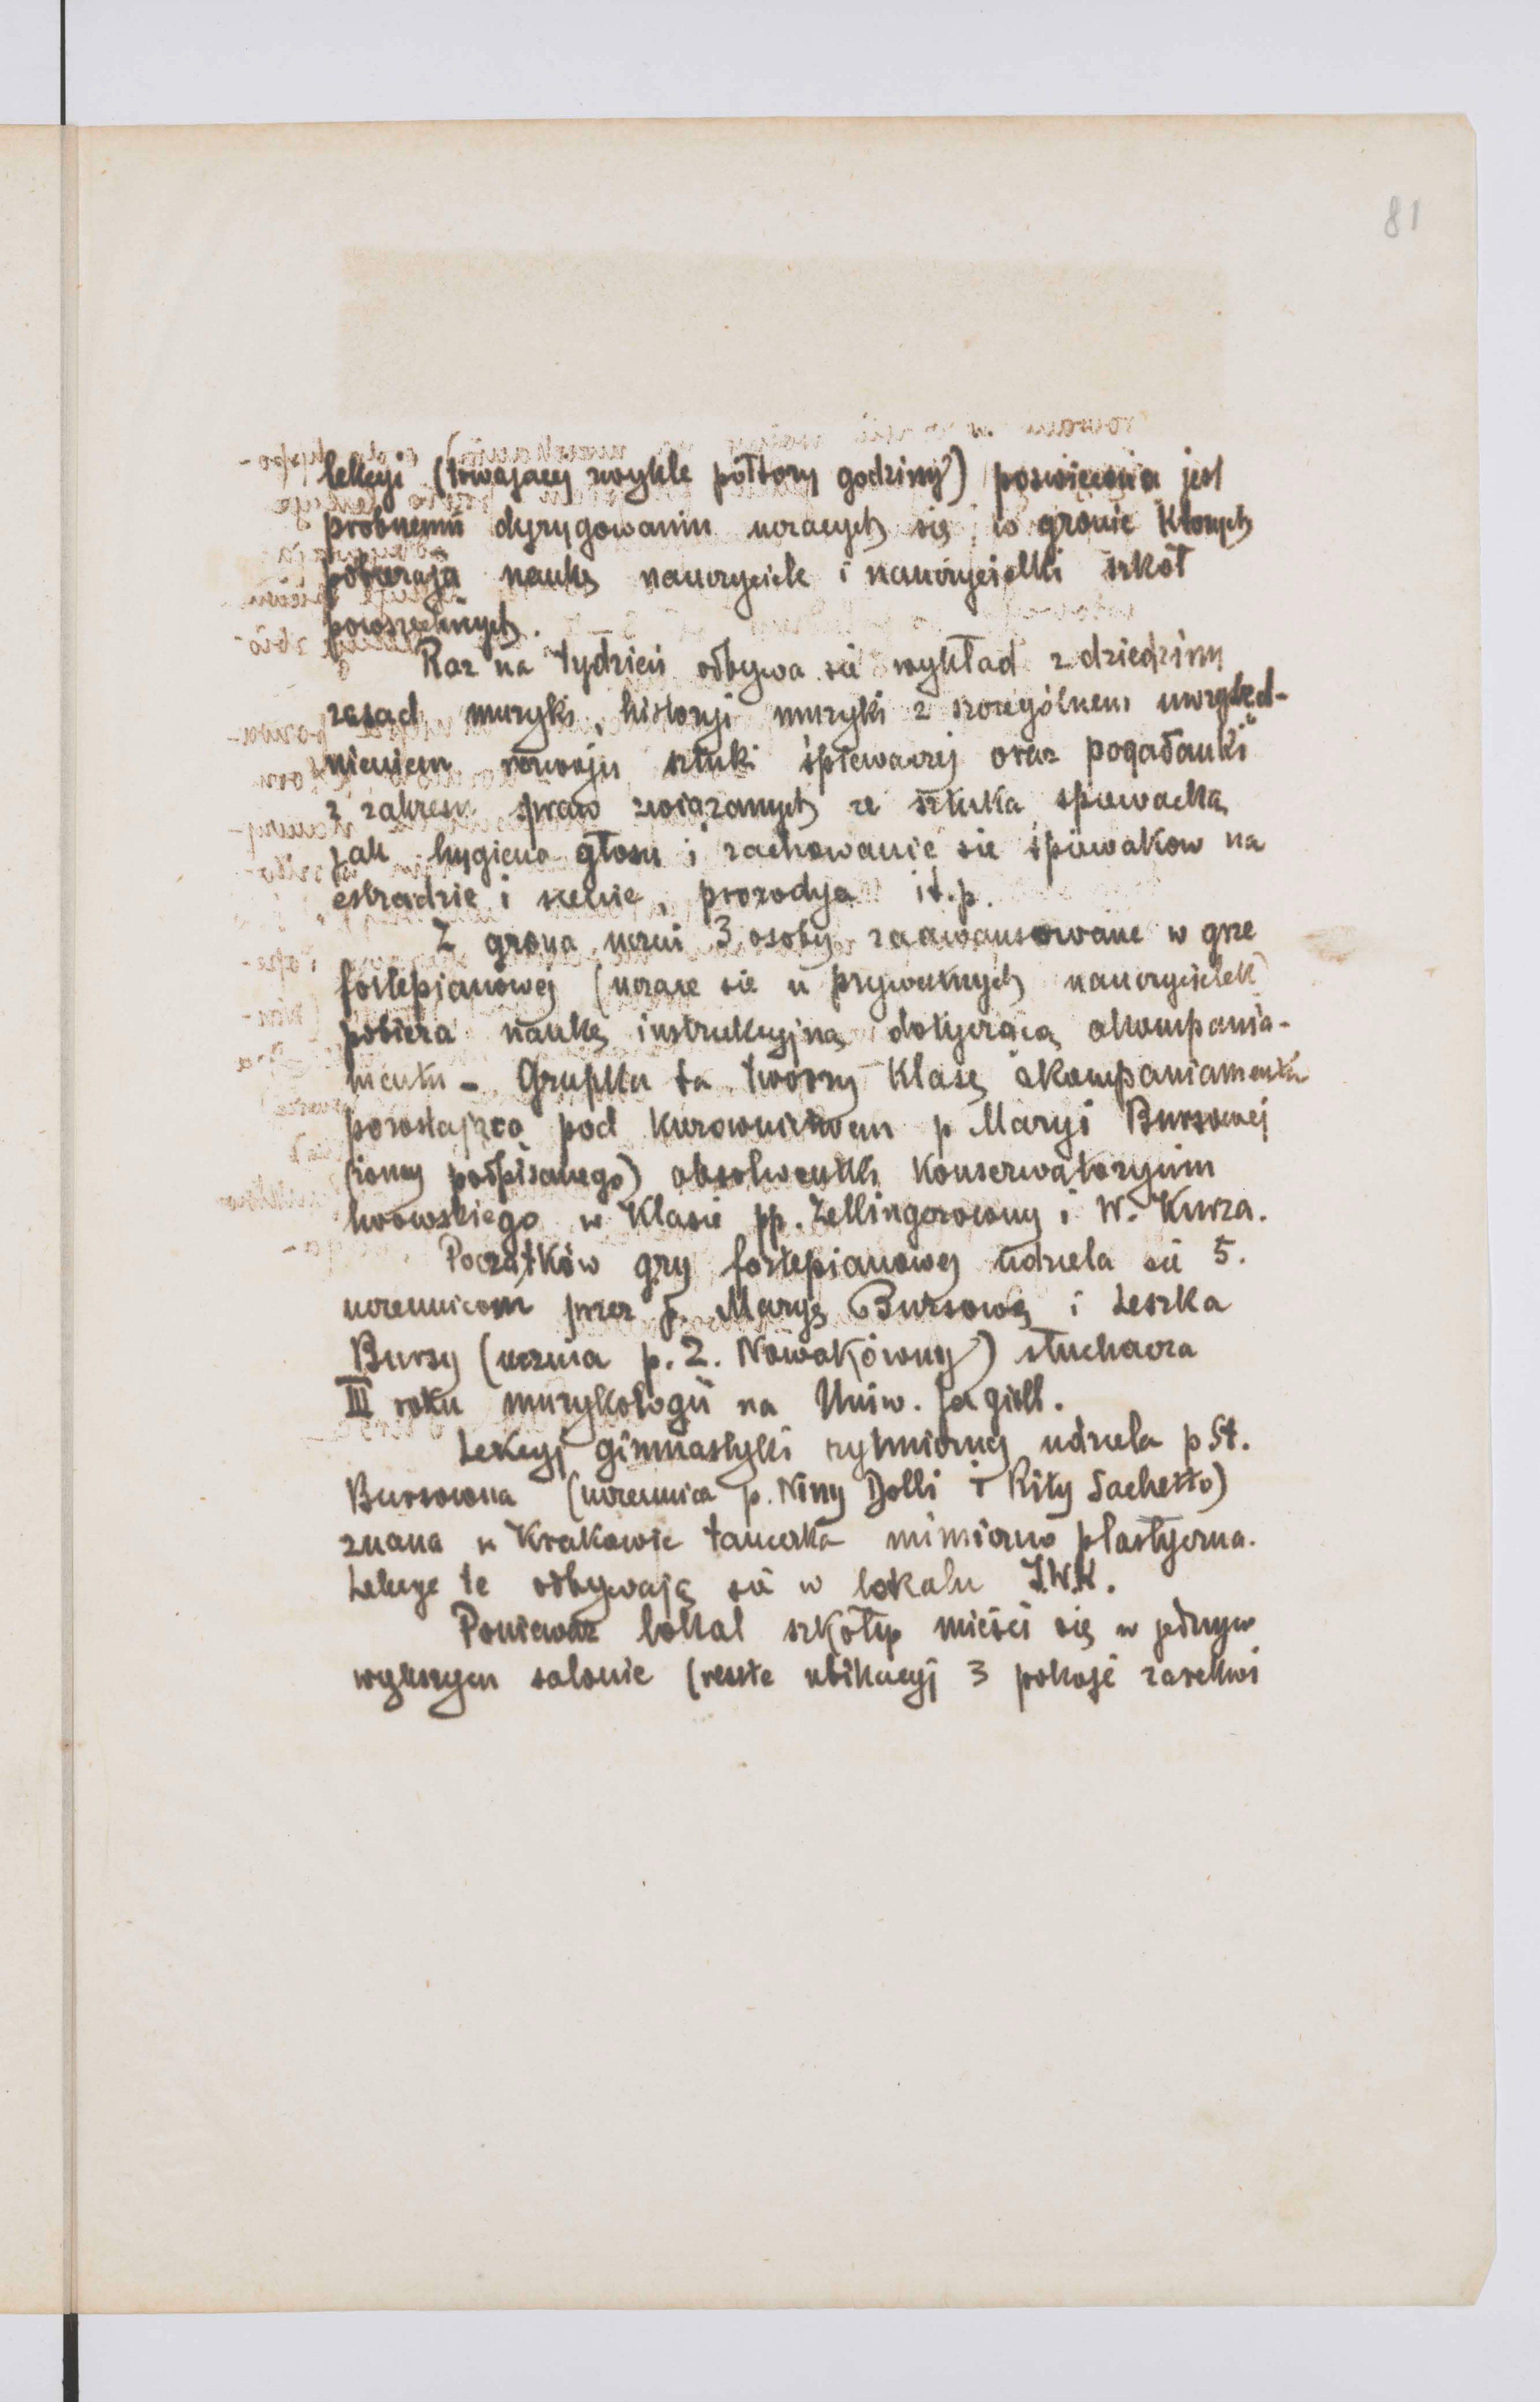 81
lekcyi (trwającej zwykle półtory godziny) poswięcona jest
probnemu dyrygowaniu uczących się, w gronie których
pobierają naukę nauczyciele i nauczycielki szkół
powszechnych.
Raz na tydzień odbywa sie wykład z dziedziny
zasad muzyki, historyi muzyki z szczególnem uwzględ-
nieniem rozwoju sztuki śpiewaczej oraz pogadanki
z zakresu spraw związanych ze sztuką spiewacką
jak hygiena głosu i zachowanie sie śpiewakow na
estradzie i scenie, prozodya it.p.
Z grona uczni 3 osoby zaawansowane w grze
fortepianowej (uczące sie u prywatnych nauczycielek)
pobiera naukę instrukcyjną dotyczącą akompania-
mentu - Grupka ta tworzy klasę akompaniamentu
pozostającą pod kierownictwem p Maryi Bursowej
(żony podpisanego) absolwentki Konserwatoryum
lwowskiego w klasie pp. Zellingerowny i W. Kurza.
Początków gry fortepianowej udziela sie 5.
uczennicom przez p. Maryę Bursową i Leszka
Bursy (ucznia p. Z. Nowakówny) słuchacza
III roku muzykologii na Uniw. Jagiell.
Lekcyj gimnastyki rytmicznej udziela p St.
Bursowna (uczennica p. Niny Dolli i Rity Sachetto)
znana w Krakowie tancerka mimiczno plastyczna.
Lekcye te odbywają sie w lokalu I.W.K.
Poniewaz lokal szkoły mieści się w jednym
większym salonie (resztę ubikacyj 3 pokoje zarekwi